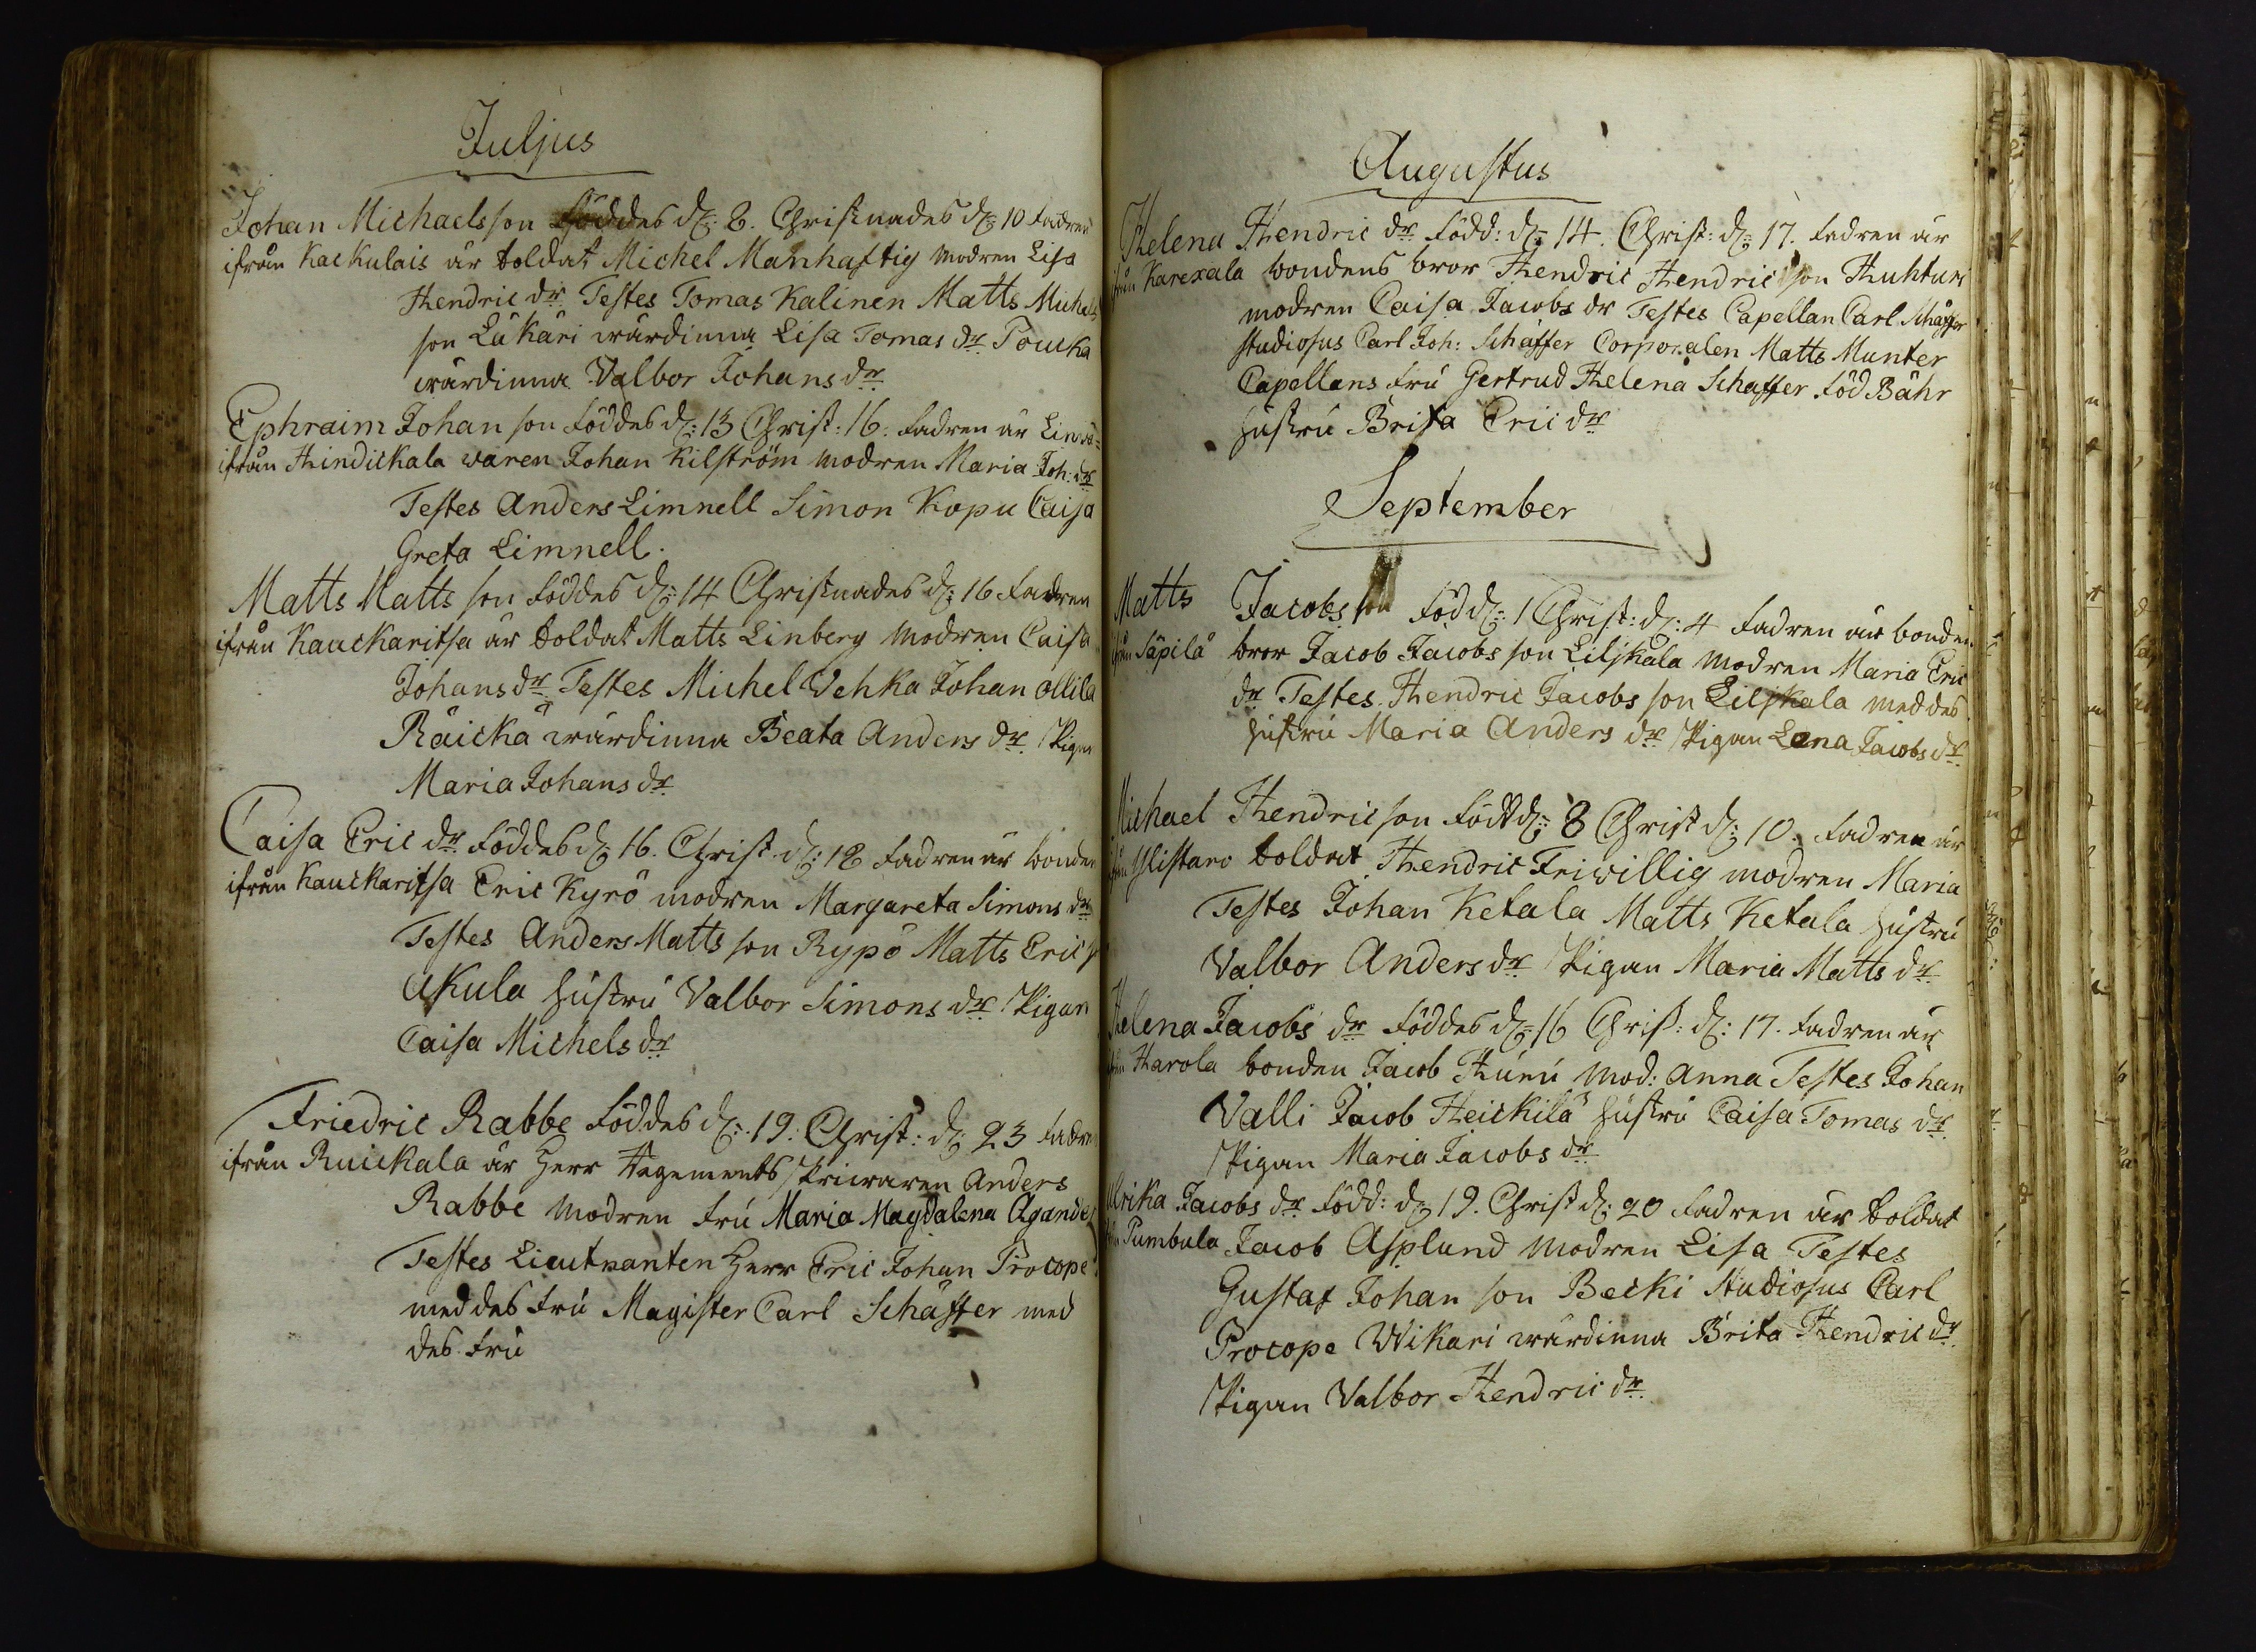 Juljus
Johan Michaelsson föddes d: 8. Christnades d: 10 fadren
ifrån Kackulais är soldat Michel Manhaftig modren Lisa
Hendric dr Testes Tomas Kalinen Matts Michels
son Lukari wärdinna Lisa Tomas dr Poucka
wärdinna Valbor Johans dr
Ephraim Johan son föddes d: 13 Christ: 16: fadren är Linwä=
ifrån Hindickala waren Johan Kilström modren Maria Joh: dr
Testes Anders Limnell Simon Kopu Caisa
Greta Limnell.
Matts Matts son föddes d: 14 Christnades d: 16 fadren
ifrån Kauckaritsa är soldat Matts Linberg modren Caisa
Johans dr Testes Michel Vehka Johan Ollila
Räickä wärdinna Beata Anders dr Pigan
Maria Johans dr
Caisa Eric dr föddes d: 16. Christ d: 18 fadren är bonden
ifrån Kauckaritsa Eric Kyrö modren Margareta Simons dr
Testes Anders Matts son Rypö Matts Eric
Ukula hustru Valbor Simons dr Pigan
Caisa Michels dr
Friedric Rabbe föddes d: 19: Christ: d: 23 fadren
ifrån Ruickala är Herr Regements Skriwaren Anders
Rabbe modren fru Maria Magdalena Agander
Testes Lieutnanten Herr Eric Johan Procopé
med des fru Magister Carl Schäffer med
des fru
Augustus
Helena Hendric dr född: d: 14. Christ: d: 17. fadren är
ifrån Karexala bondens bror Hendric Hendric son Huhturi
modren Caisa Jacobs dr Testes Capellan Carl Schäffer
studiosus Carl Joh: Schäffer Corporalen Matts Munter
Capellans fru Gertrud Helena Schaffer föd Bähr
hustru Brita Eric dr
September
Matts Jacobs son föd d: 1 Christ: d: 4 fadren är bonden
ifrån Säpilä bror Jacob Jacobs son Liljkala modren Maria Eric
dr Testes Hendric Jacobs son Liljkala med des
hustru Maria Anders dr Pigan Lena Jacobs dr
Michael Hendric son född d: 8 Christ d: 10. fadren är
ifrån Ylistaro soldat Hendric Friwillig modren Maria
Testes Johan Ketala Matts Ketala hustru
Valbor Anders dr Pigan Maria Matts dr
Helena Jacobs dr föddes d: 16 Christ: d: 17. fadren är
ifrån Harola bonden Jacob Huru mod: Anna Testes Johan
Valli Jacob Heickilä hustru Caisa Tomas dr
Pigan Maria Jacobs dr
Ulrika Jacobs dr född: d: 19. Christ d: 20 fadren är soldat
ifrån Pumbula Jacob Asplund modren Lisa Testes
Gustaf Johan son Becki Studiosus Carl
Procope Wikari wärdinna Brita Hendric dr
Pigan Valbor Hendric dr